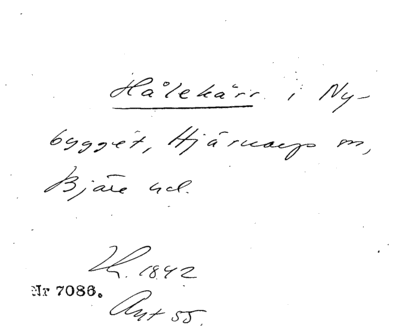 Hålekärr i Ny-
bygget, Hjärnarps sn,
Bjäre hd.
Lh. 1842
Nr 7086.
Ant 55.